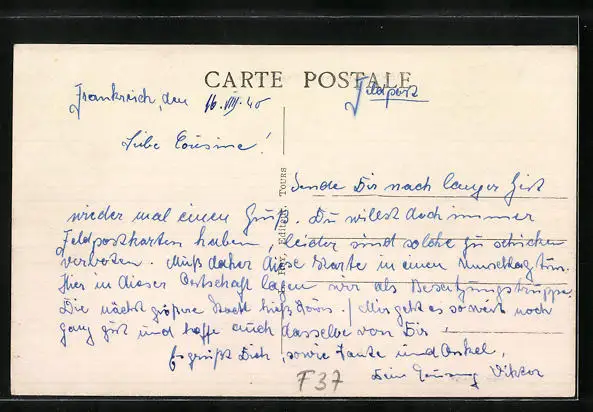 CARTE POSTALE
Feldpost
Frankreich, den 16.VIII.40
Liebe Cousine!
Sende Dir nach langer Zeit
wieder mal einen Gruß. Du willst doch immer
Feldpostkarten haben, leider sind solche zu schicken
verboten. Muß daher diese Karte in einen Umschlag tun.
Hier in dieser Ortschaft lagen wir als Besetzungstruppe.
Die nächst größre Stadt hieß. ! Mir geht es soweit noch
ganz gut und hoffe auch dasselbe von Dir!
Es grüßt Dich, sowie Tante und Onkel,
Dein Viktor
Editeur, TOURS
F37